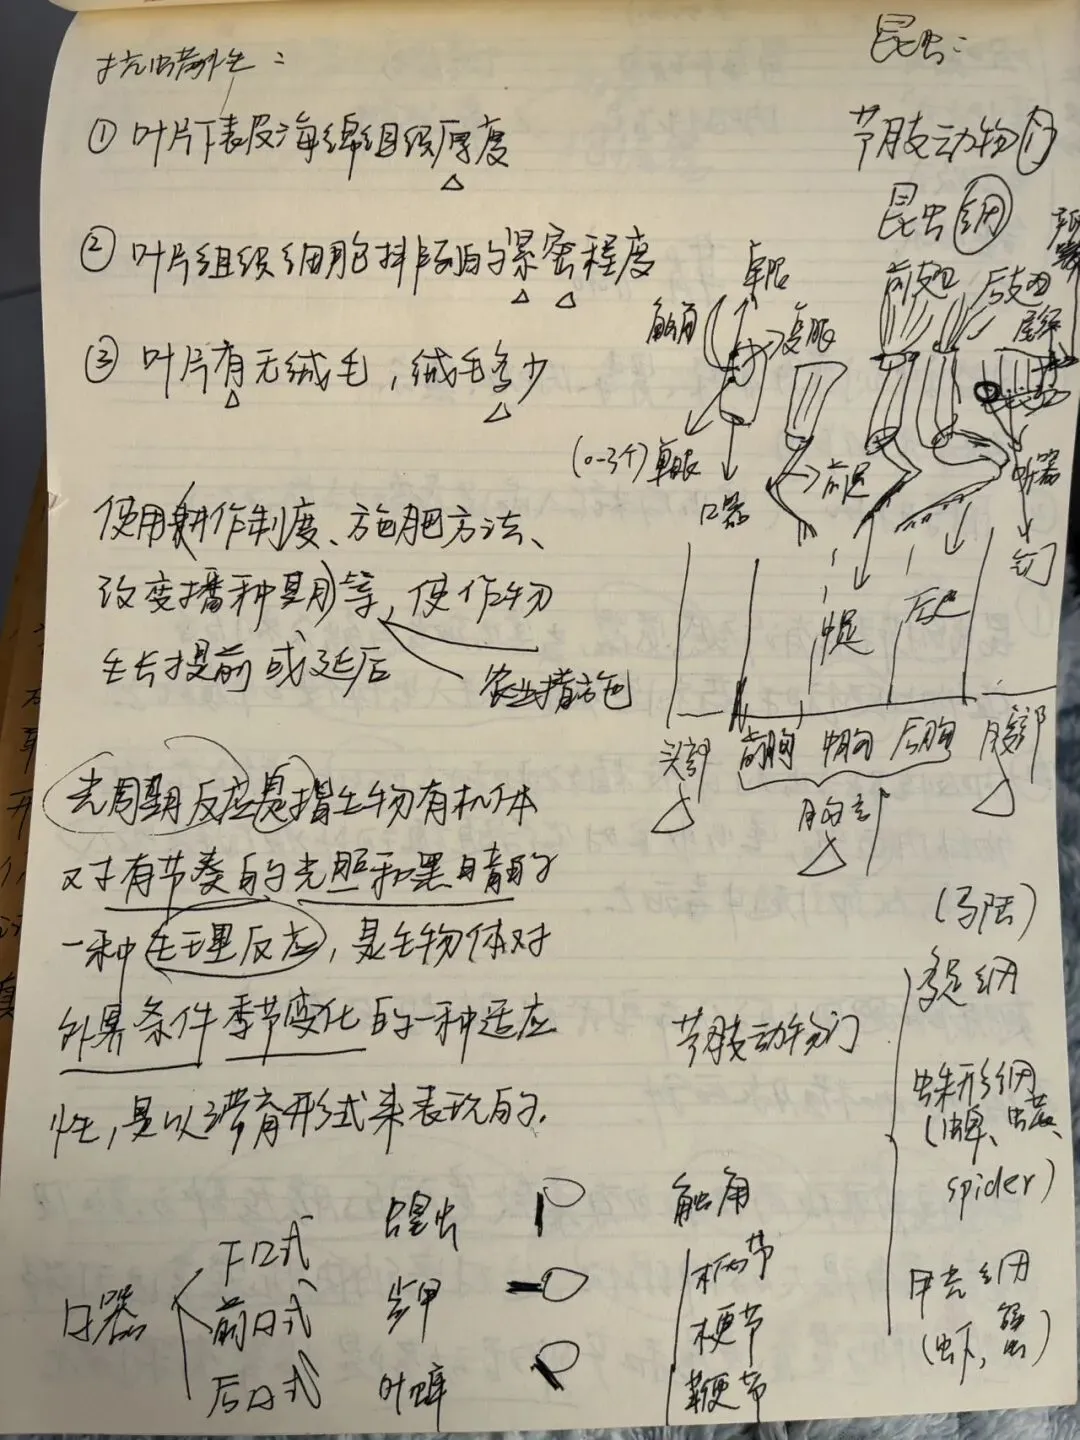 抗虫蓄性：
①叶片下表皮海绵组织厚度
②叶片组织细胞排列的紧密程度
③叶片有无绒毛，绒毛多少
使用耕作制度、施肥方法、
改变播种期等，使作物
生长提前或延后
农业措施
光周期反应是指生物有机体
对有节奏的光照和黑暗的
一种生理反应，是生物体对
外界条件季节变化的一种适应
性，是以滞育形式来表现的.
口器
下口式 蝗虫
前口式 步甲
后口式 叶蝉
昆虫：
节肢动物门
昆虫纲
触角
复眼
(0-3个)单眼
口器
前翅
后翅
前足
中足
后足
听器
肛门
头部
前胸 中胸 后胸
腹部
胸部
节肢动物门
(马陆)
多足纲
蛛形纲
(蜱、蝎、
spider)
甲壳纲
(虾，蟹)
触角
柄节
梗节
鞭节